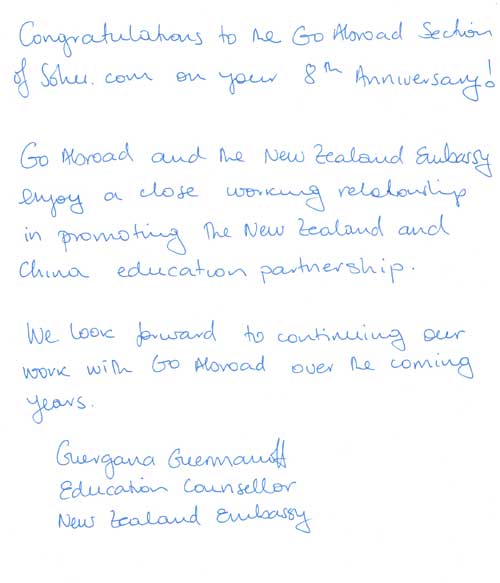 Congratulations to the Go Abroad Section
of Sohu.com on your 8th Anniversary!
Go Abroad and the New Zealand Embassy
enjoy a close working relationship
in promoting the New Zealand and
China education partnership.
We look forward to continuing our
work with Go Abroad over the coming
years.
Guergana Guermanoff
Education Counsellor
New Zealand Embassy